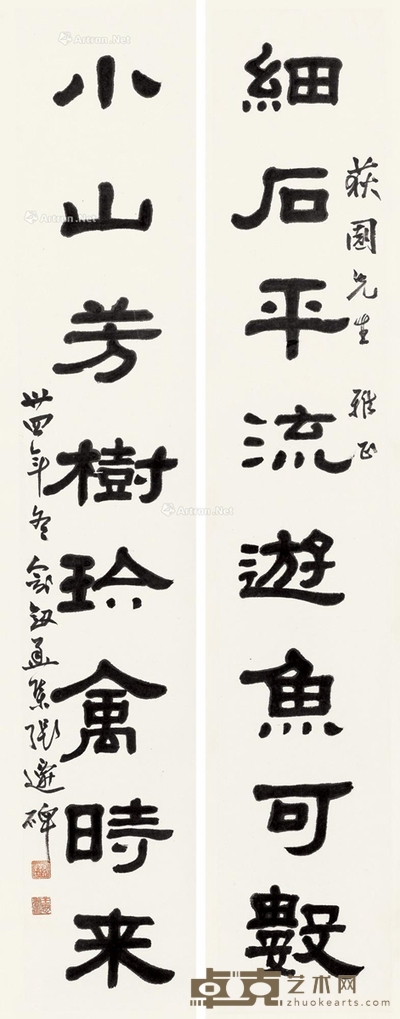 荻園先生 雅正
細石平流遊魚可數
小山芳樹珍禽時来
卅四年冬俞釼華集張遷碑
Artron.Net
Artron.Net
Artron.Net
Artron.Net
Artron.Net
卓克艺术网
zhuokearts.com